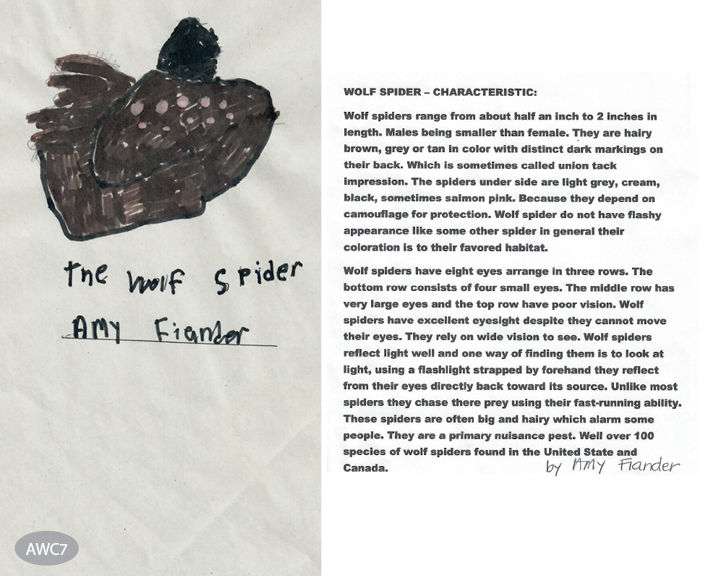 the wolf Spider
AMY Fiander
AWC7
WOLF SPIDER – CHARACTERISTIC:
Wolf spiders range from about half an inch to 2 inches in
length. Males being smaller than female. They are hairy
brown, grey or tan in color with distinct dark markings on
their back. Which is sometimes called union tack
impression. The spiders under side are light grey, cream,
black, sometimes salmon pink. Because they depend on
camouflage for protection. Wolf spider do not have flashy
appearance like some other spider in general their
coloration is to their favored habitat.
Wolf spiders have eight eyes arrange in three rows. The
bottom row consists of four small eyes. The middle row has
very large eyes and the top row have poor vision. Wolf
spiders have excellent eyesight despite they cannot move
their eyes. They rely on wide vision to see. Wolf spiders
reflect light well and one way of finding them is to look at
light, using a flashlight strapped by forehand they reflect
from their eyes directly back toward its source. Unlike most
spiders they chase there prey using their fast-running ability.
These spiders are often big and hairy which alarm some
people. They are a primary nuisance pest. Well over 100
species of wolf spiders found in the United State and
Canada.
by AMY Fiander